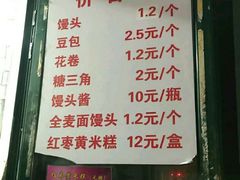 馒头 1.2/个
豆包 2.5元/个
花卷 1.2/个
糖三角 2元/个
馒头酱 10元/瓶
全麦面馒头 1.2元/个
红枣黄米糕 12元/盒